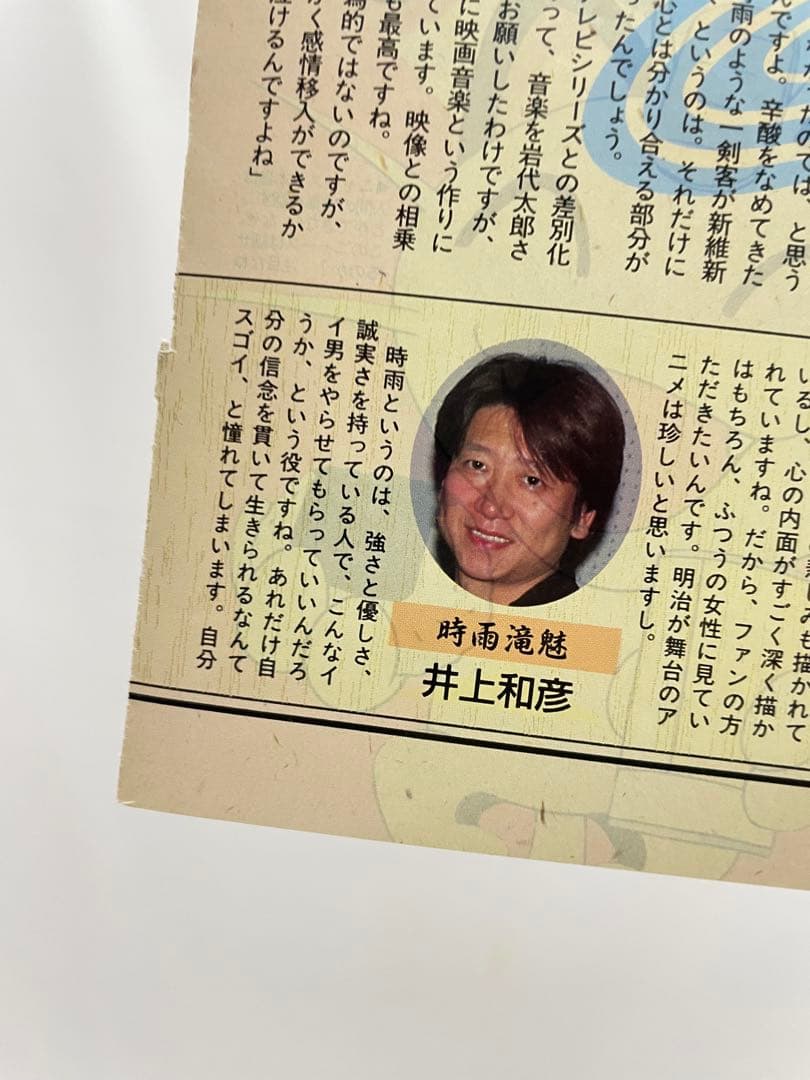 んですよ。辛酸をなめてきた
雨のような一剣客が新維新
というのは。それだけに
心とは分かり合える部分が
ったんでしょう。
レビシリーズとの差別化
って、音楽を岩代太郎さ
お願いしたわけですが、
に映画音楽という作りに
ています。映像との相乗
も最高ですね。
為的ではないのですが、
く感情移入ができるか
泣けるんですよね」
いるし、心の内面がすごく深く描か
れていますね。だから、ファンの方
はもちろん、ふつうの女性に見てい
ただきたいんです。明治が舞台のア
ニメは珍しいと思いますし。
時雨滝魅
井上和彦
時雨というのは、強さと優しさ、
誠実さを持っている人で、こんなイ
イ男をやらせてもらっていいんだろ
うか、という役ですね。あれだけ自
分の信念を貫いて生きられるなんて
スゴイ、と憧れてしまいます。自分